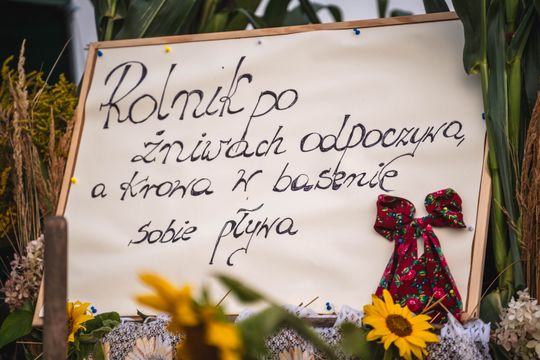 Rolnik po
żniwach odpoczywa,
a krowa w basenie
sobie pływa